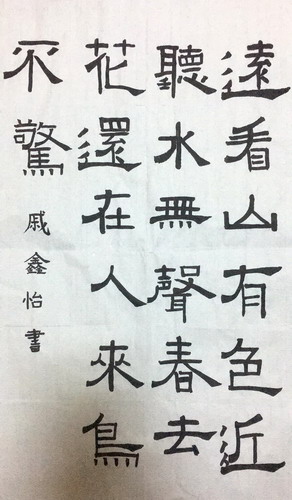 遠看山有色近
聽水無聲春去
花還在人來鳥
不驚
戚鑫怡書